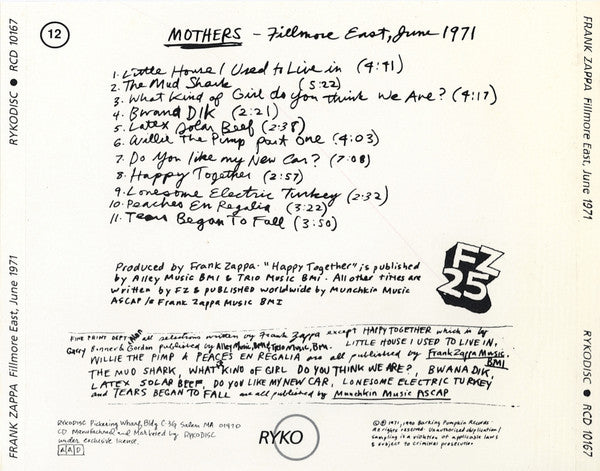 12
MOTHERS - Fillmore East, June 1971
1. Little House I Used to Live in (4:41)
2. The Mud Shark (5:22)
3. What Kind of Girl do you think We Are? (4:17)
4. Bwana Dik (2:21)
5. Latex Solar Beef (2:38)
6. Willie The Pimp part one (4:03)
7. Do You like my New Car? (7:08)
8. Happy Together (2:57)
9. Lonesome Electric Turkey (2:32)
10. Peaches En Regalia (3:22)
11. Tears Began To Fall (3:50)
Produced by Frank Zappa. "Happy Together" is published
by Alley Music BMI & Trio Music BMI. All other titles are
written by FZ & published worldwide by Munchkin Music
ASCAP/o Frank Zappa Music BMI
FZ
25
FINE PRINT DEPT: all selections written by Frank Zappa except HAPPY TOGETHER which is by
Garry Bonner & Alan Gordon published by Alley Music, BMI, Trio Music, BMI. LITTLE HOUSE I USED TO LIVE IN,
WILLIE THE PIMP & PEACES EN REGALIA are all published by Frank Zappa Music, BMI
THE MUD SHARK, WHAT KIND OF GIRL DO YOU THINK WE ARE?, BWANA DIK,
LATEX SOLAR BEEF, DO YOU LIKE MY NEW CAR, LONESOME ELECTRIC TURKEY
and TEARS BEGAN TO FALL are all published by Munchkin Music ASCAP
RYKODISC Pickering Wharf, Bldg C-3G Salem MA 01970
CD Manufactured and Marketed by RYKODISC
under exclusive licence.
AAD
RYKO
©℗ 1971, 1990 Barking Pumpkin Records
All rights reserved. Unauthorized duplication/
Sampling is a violation of applicable laws
& subject to criminal prosecution.
FRANK ZAPPA Fillmore East, June 1971 RYKODISC ● RCD 10167
FRANK ZAPPA Fillmore East, June 1971 RYKODISC ● RCD 10167